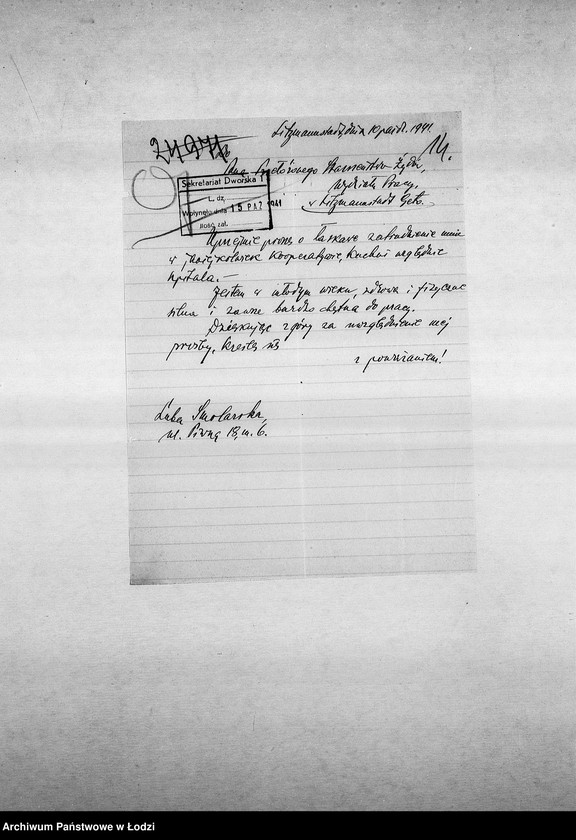 Litzmannstadt, dnia 10 paźdz. 1941.
14.
Do
Pana Przełożonego Starszeństwa Żydów,
Wydział Pracy,
w Litzmannstadt Geto.
Sekretariat Dworska 1
L. dz.
Wpłynęło dnia 15 PAŹ 1941
Ilość zał.
Uprzejmie proszę o łaskawe zatrudnienie mnie
w jakiejkolwiek Kooperatywie, kuchni względnie
szpitala.-
Jestem w młodym wieku, zdrowa i fizycznie
silna i zawsze bardzo chętna do pracy.
Dziękując z góry za uwzględnienie mej
prośby, kreślę się
z poważaniem!
Luba Smolarska,
ul. Piwna 18, m. 6.
Archiwum Państwowe w Łodzi